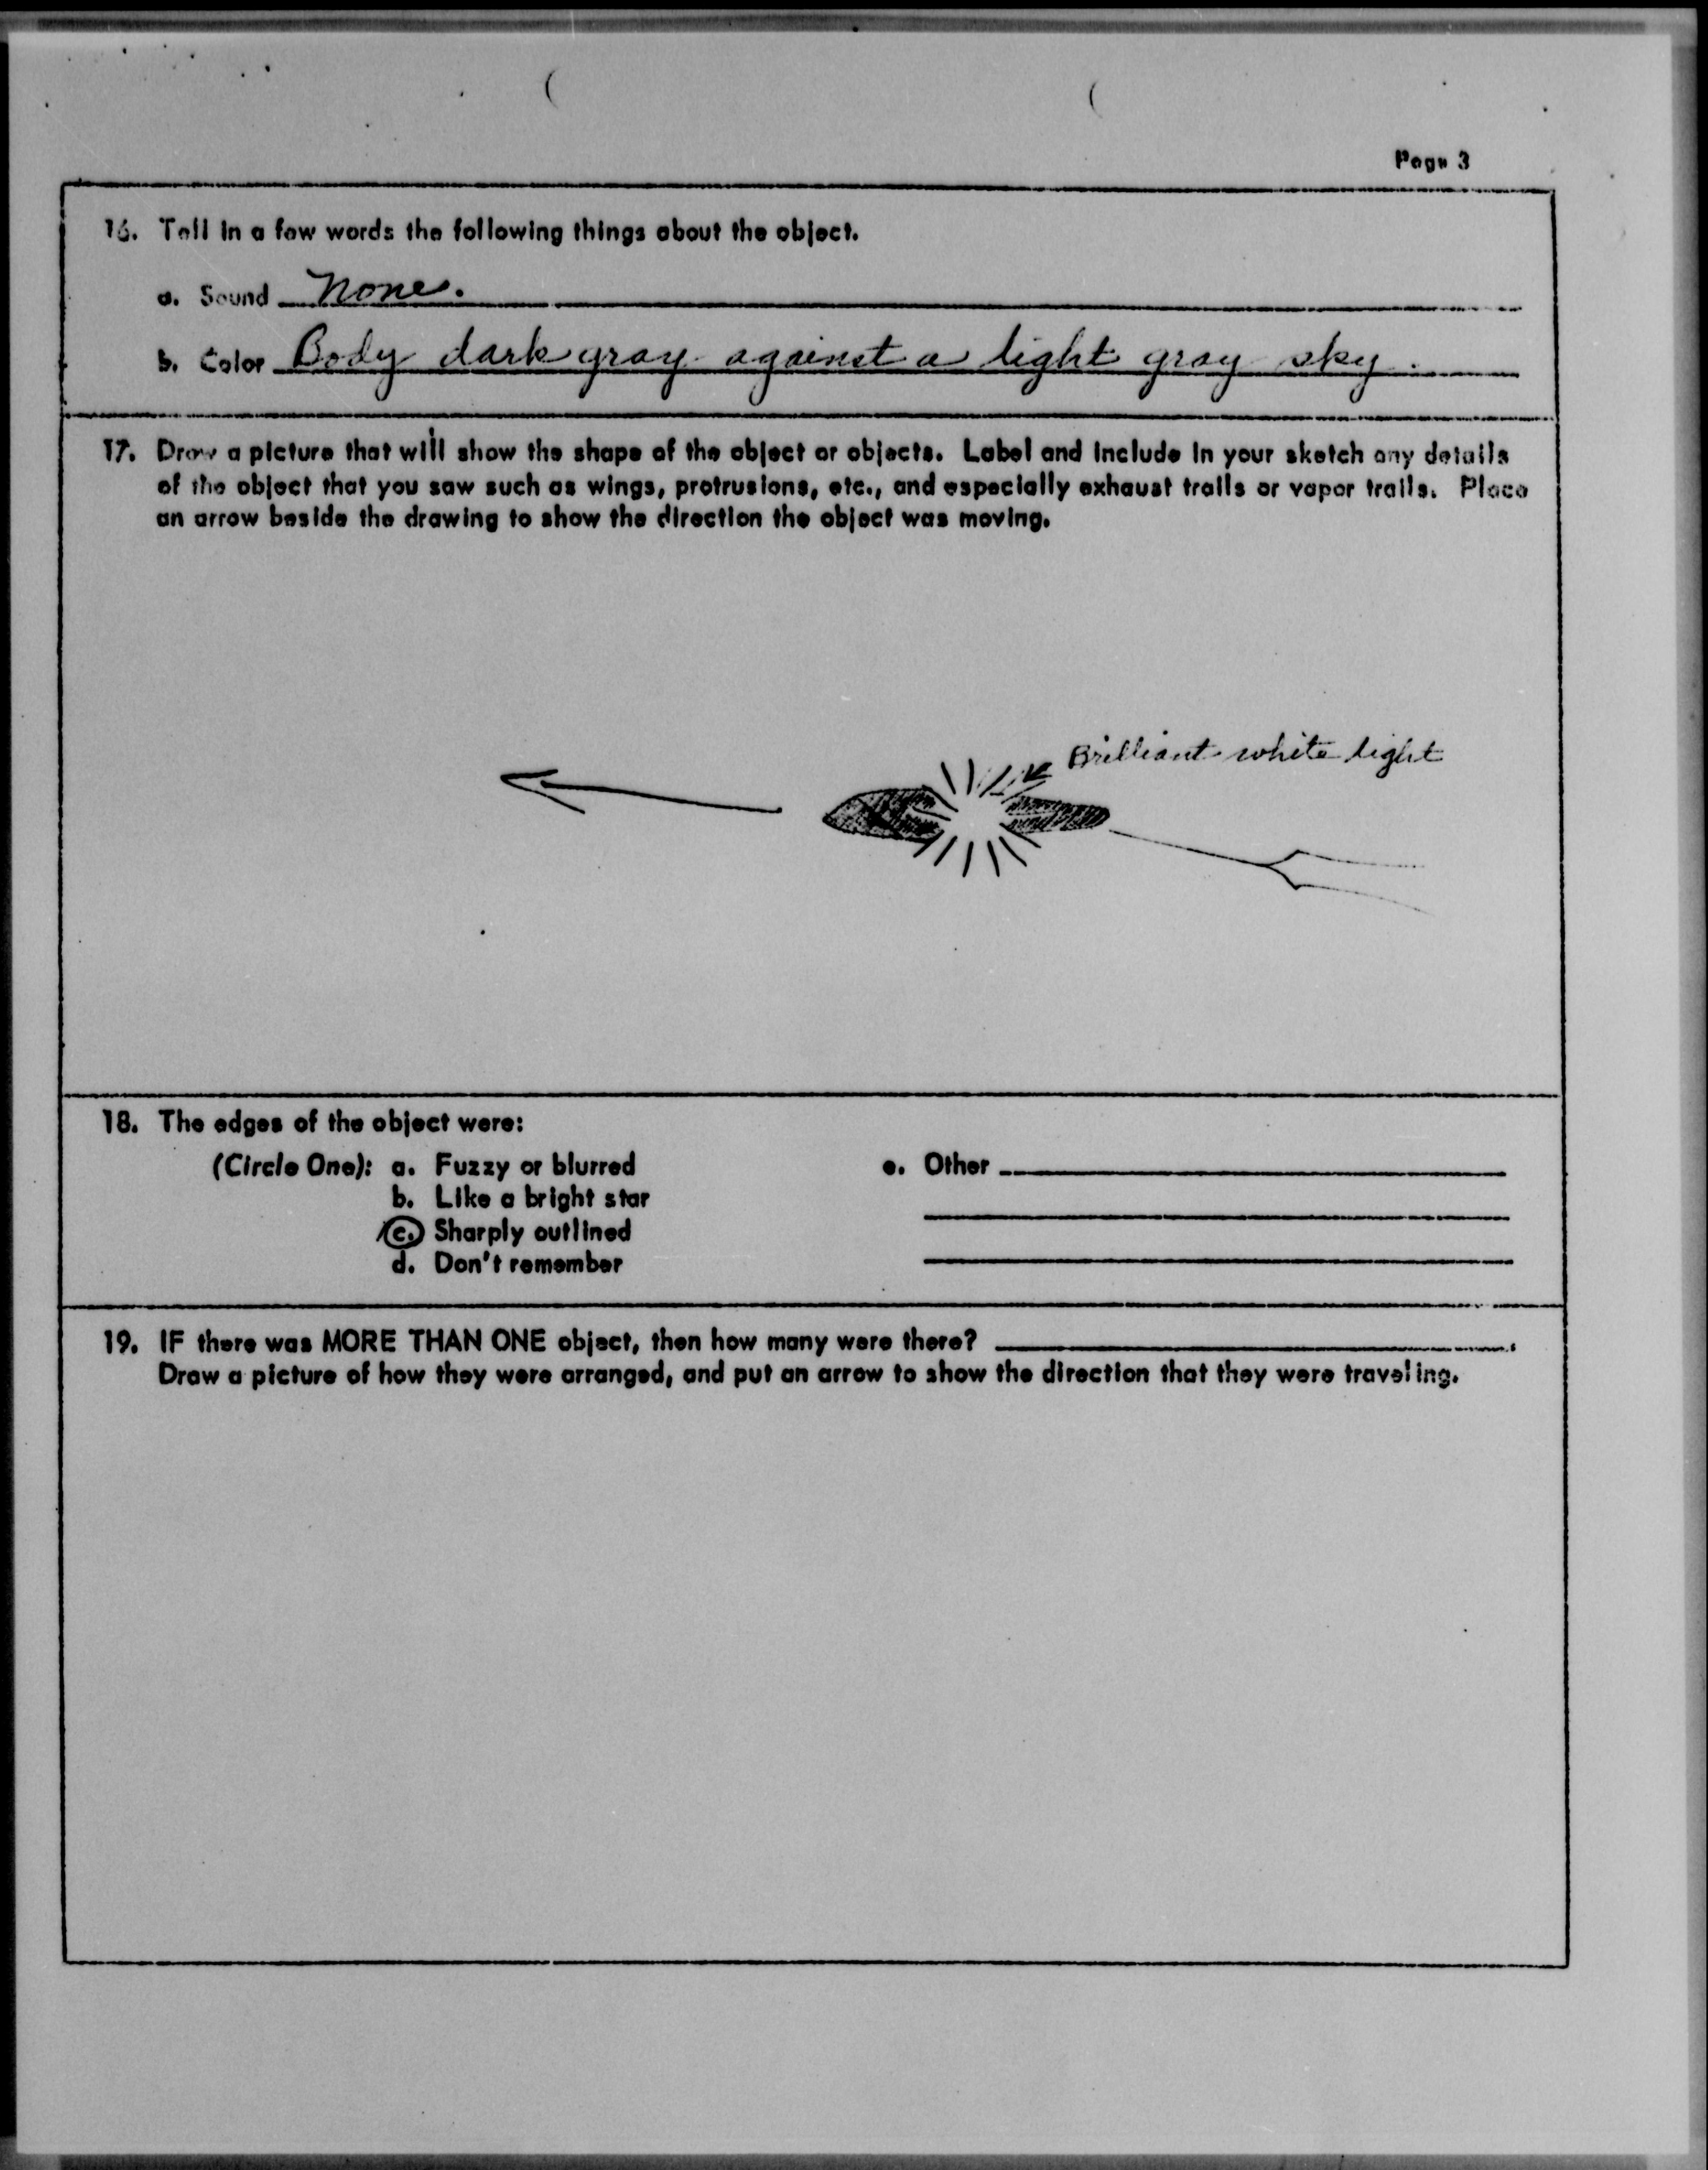 Page 3
16. Tell in a few words the following things about the object.
a. Sound None.
b. Color Body dark gray against a light gray sky.
17. Draw a picture that will show the shape of the object or objects. Label and include in your sketch any details
of the object that you saw such as wings, protrusions, etc., and especially exhaust trails or vapor trails. Place
an arrow beside the drawing to show the direction the object was moving.
Brilliant white light
18. The edges of the object were:
(Circle One): a. Fuzzy or blurred
b. Like a bright star
c. Sharply outlined
d. Don't remember
e. Other
19. IF there was MORE THAN ONE object, then how many were there?
Draw a picture of how they were arranged, and put an arrow to show the direction that they were traveling.